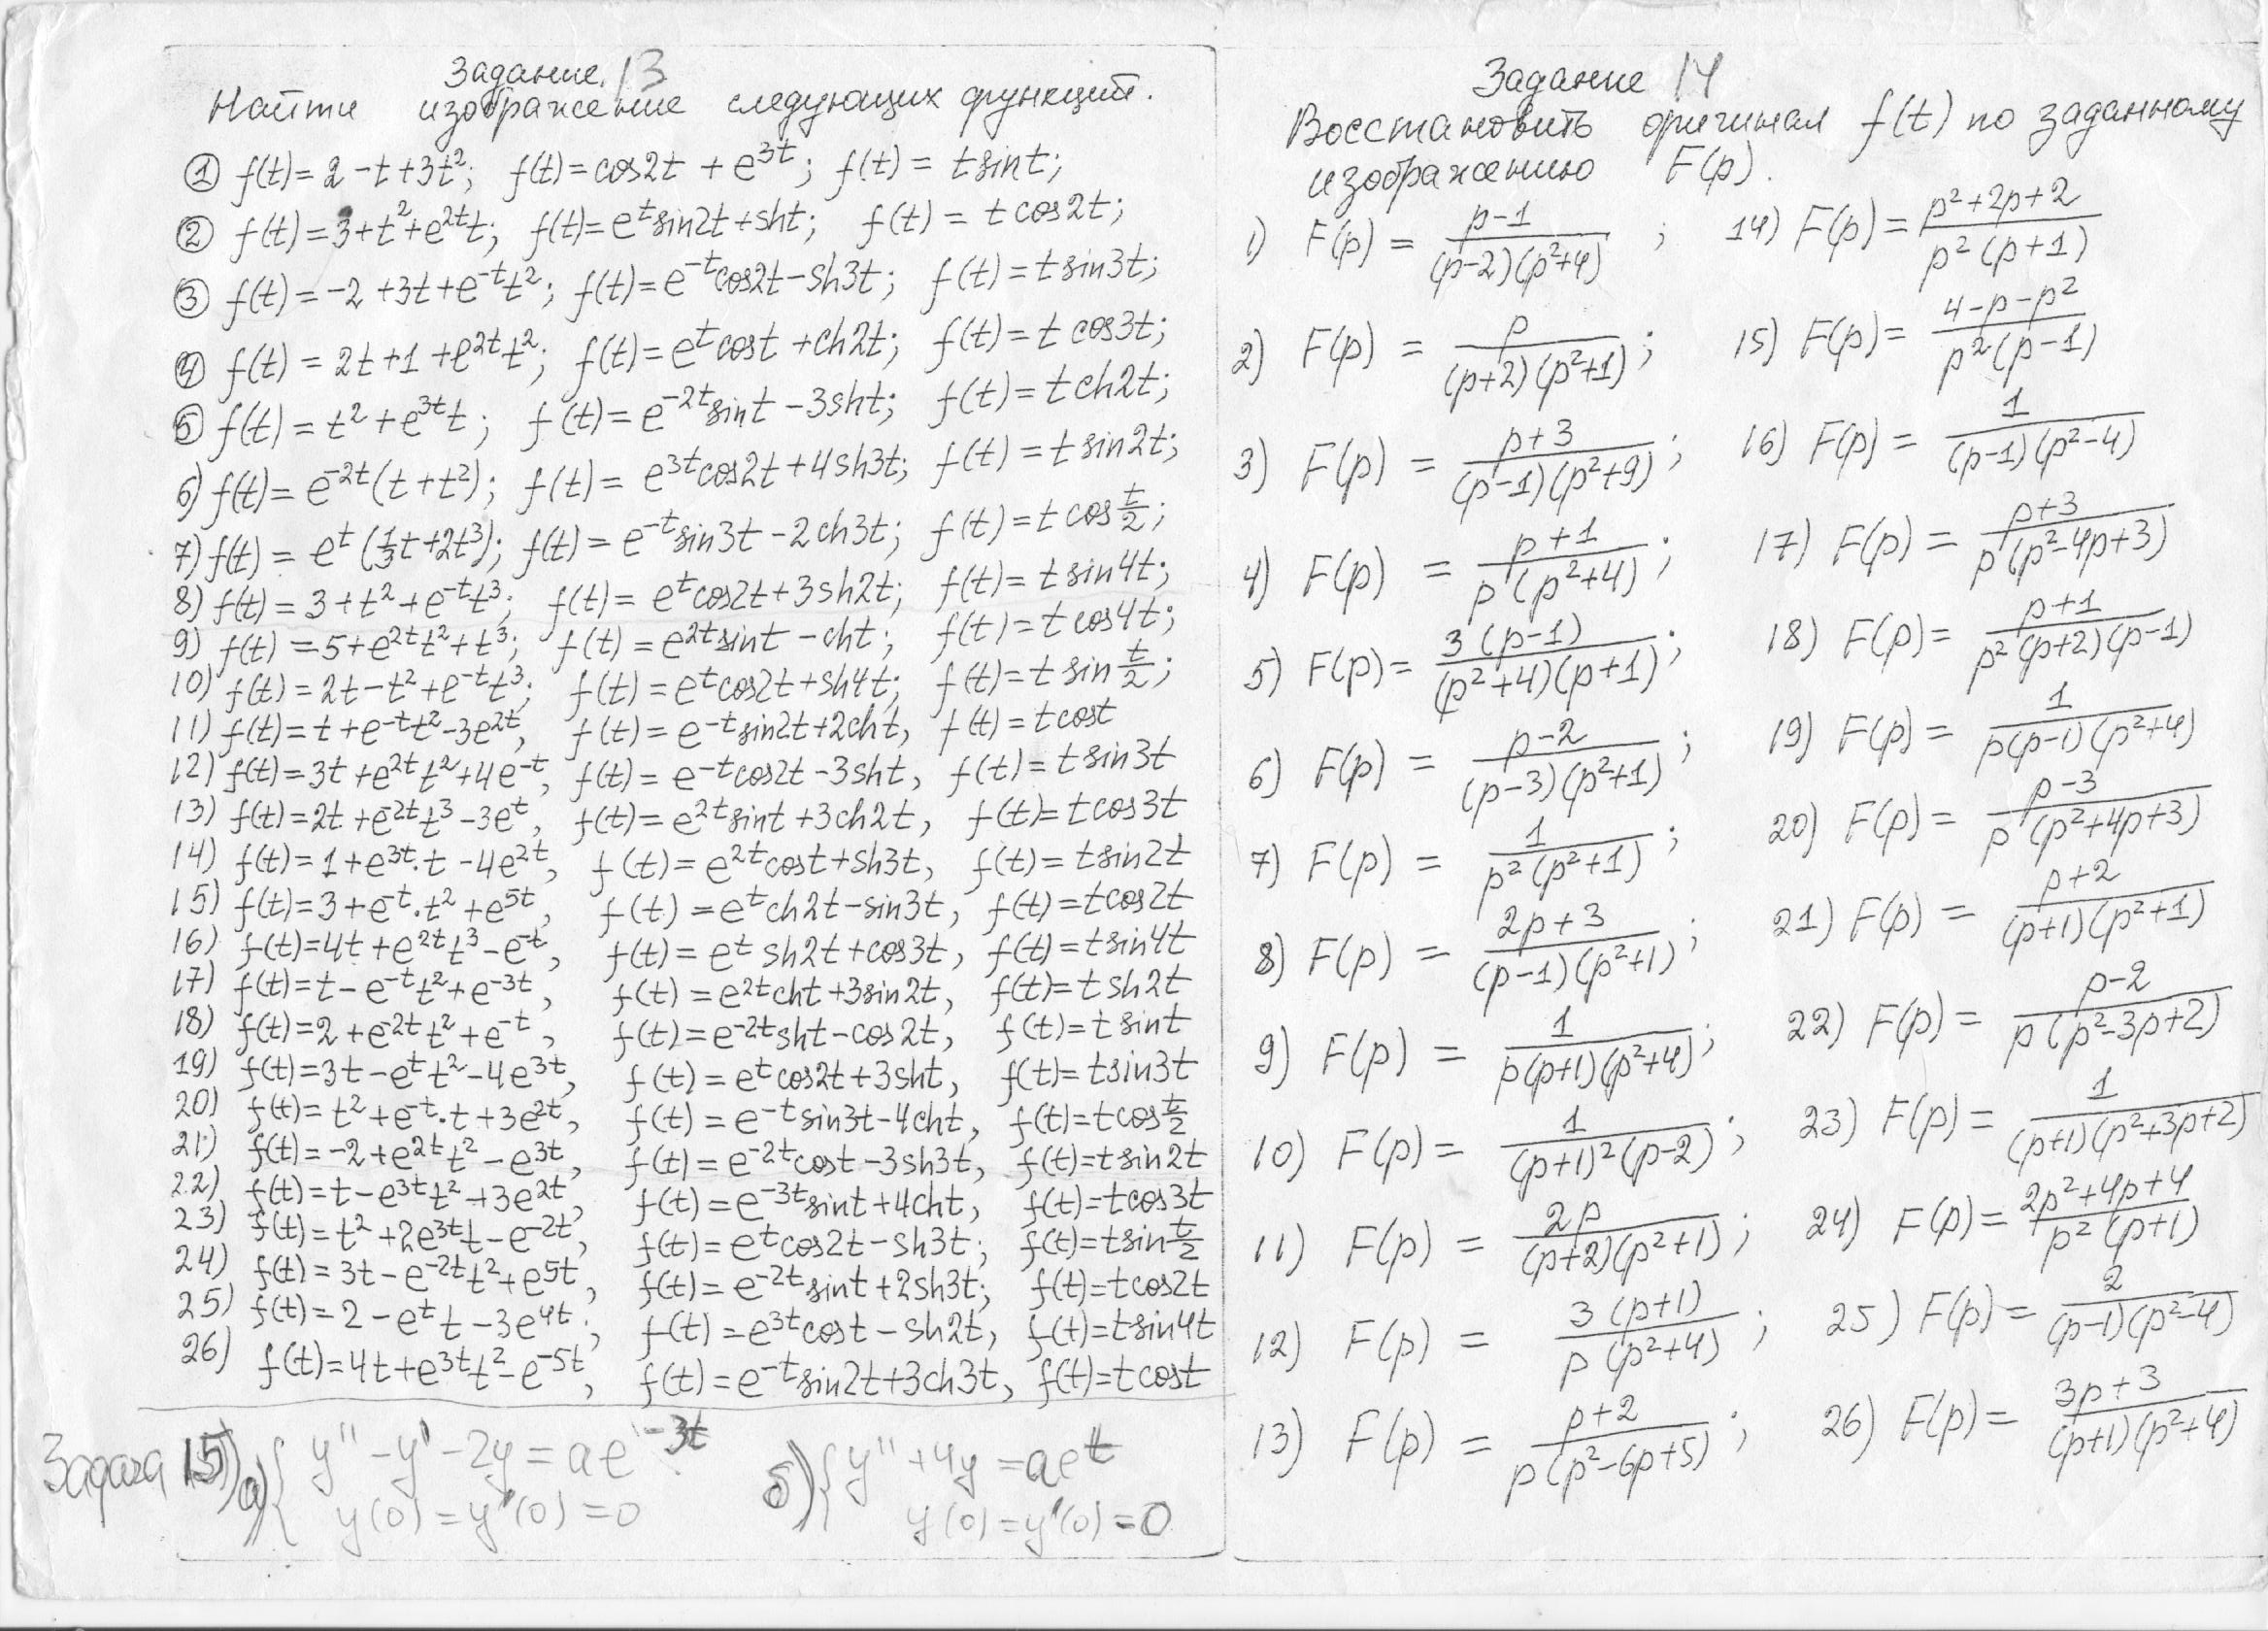 Задание 13
Найти изображение следующих функций.
① f(t)=2-t+3t²; f(t)=cos2t+e^{3t}; f(t)=tsint;
② f(t)=3+t²+e^{2t}t; f(t)=e^tsin2t+sht; f(t)=tcos2t;
③ f(t)=-2+3t+e^{-t}t²; f(t)=e^{-t}cos2t-sh3t; f(t)=tsin3t;
④ f(t)=2t+1+e^{2t}t²; f(t)=e^tcost+ch2t; f(t)=tcos3t;
⑤ f(t)=t²+e^{3t}t; f(t)=e^{-2t}sint-3sht; f(t)=tch2t;
6) f(t)=e^{-2t}(t+t²); f(t)=e^{3t}cos2t+4sh3t; f(t)=tsin2t;
7) f(t)=e^t(1/3t+2t³); f(t)=e^{-t}sin3t-2ch3t; f(t)=tcos t/2;
8) f(t)=3+t²+e^{-t}t³; f(t)=e^tcos2t+3sh2t; f(t)=tsin4t;
9) f(t)=5+e^{2t}t²+t³; f(t)=e^{2t}sint-cht; f(t)=tcos4t;
10) f(t)=2t-t²+e^{-t}t³; f(t)=e^tcos2t+sh4t; f(t)=tsin t/2;
11) f(t)=t+e^{-t}t²-3e^{2t}, f(t)=e^{-t}sin2t+2cht, f(t)=tcost
12) f(t)=3t+e^{2t}t²+4e^{-t}, f(t)=e^{-t}cos2t-3sht, f(t)=tsin3t
13) f(t)=2t+e^{-2t}t³-3e^t, f(t)=e^{2t}sint+3ch2t, f(t)=tcos3t
14) f(t)=1+e^{3t}·t-4e^{2t}, f(t)=e^{2t}cost+sh3t, f(t)=tsin2t
15) f(t)=3+e^{-t}·t²+e^{5t}, f(t)=e^tch2t-sin3t, f(t)=tcos2t
16) f(t)=4t+e^{2t}t³-e^{-t}, f(t)=e^tsh2t+cos3t, f(t)=tsin4t
17) f(t)=t-e^{-t}t²+e^{-3t}, f(t)=e^{2t}cht+3sin2t, f(t)=tsh2t
18) f(t)=2+e^{-2t}t²+e^{-t}, f(t)=e^{-2t}sht-cos2t, f(t)=tsint
19) f(t)=3t-e^tt²-4e^{3t}, f(t)=e^tcos2t+3sht, f(t)=tsin3t
20) f(t)=t²+e^{-t}·t+3e^{2t}, f(t)=e^{-t}sin3t-4cht, f(t)=tcos t/2
21) f(t)=-2+e^{2t}t²-e^{3t}, f(t)=e^{-2t}cost-3sh3t, f(t)=tsin2t
22) f(t)=t-e^{3t}t²+3e^{2t}, f(t)=e^{-3t}sint+4cht, f(t)=tcos3t
23) f(t)=t²+2e^{3t}t-e^{-2t}, f(t)=e^tcos2t-sh3t; f(t)=tsin t/2
24) f(t)=3t-e^{-2t}t²+e^{5t}, f(t)=e^{-2t}sint+2sh3t; f(t)=tcos2t
25) f(t)=2-e^tt-3e^{4t}; f(t)=e^{3t}cost-sh2t, f(t)=tsin4t
26) f(t)=4t+e^{3t}t²-e^{-5t}, f(t)=e^{-t}sin2t+3ch3t, f(t)=tcost
Задача 15) а) { y''-y'-2y=ae^{-3t} б) { y''+4y=ae^t
y(0)=y'(0)=0 y(0)=y'(0)=0
Задание 14
Восстановить оригинал f(t) по заданному
изображению F(p).
1) F(p)=(p-1)/((p-2)(p²+4)); 14) F(p)=(p²+2p+2)/(p²(p+1))
2) F(p)=p/((p+2)(p²+1)); 15) F(p)=(4-p-p²)/(p²(p-1))
3) F(p)=(p+3)/((p-1)(p²+9)); 16) F(p)=1/((p-1)(p²-4))
4) F(p)=(p+1)/(p(p²+4)); 17) F(p)=(p+3)/(p(p²-4p+3))
5) F(p)=3(p-1)/((p²+4)(p+1)); 18) F(p)=(p+1)/(p²(p+2)(p-1))
6) F(p)=(p-2)/((p-3)(p²+1)); 19) F(p)=1/(p(p-1)(p²+4))
7) F(p)=1/(p²(p²+1)); 20) F(p)=(p-3)/(p(p²+4p+3))
8) F(p)=(2p+3)/((p-1)(p²+1)); 21) F(p)=(p+2)/((p+1)(p²+1))
9) F(p)=1/(p(p+1)(p²+4)); 22) F(p)=(p-2)/(p(p²-3p+2))
10) F(p)=1/((p+1)²(p-2)); 23) F(p)=1/((p+1)(p²+3p+2))
11) F(p)=2p/((p+2)(p²+1)); 24) F(p)=(2p²+4p+4)/(p²(p+1))
12) F(p)=3(p+1)/(p(p²+4)); 25) F(p)=2/((p-1)(p²-4))
13) F(p)=(p+2)/(p(p²-6p+5)); 26) F(p)=(3p+3)/((p+1)(p²+4))